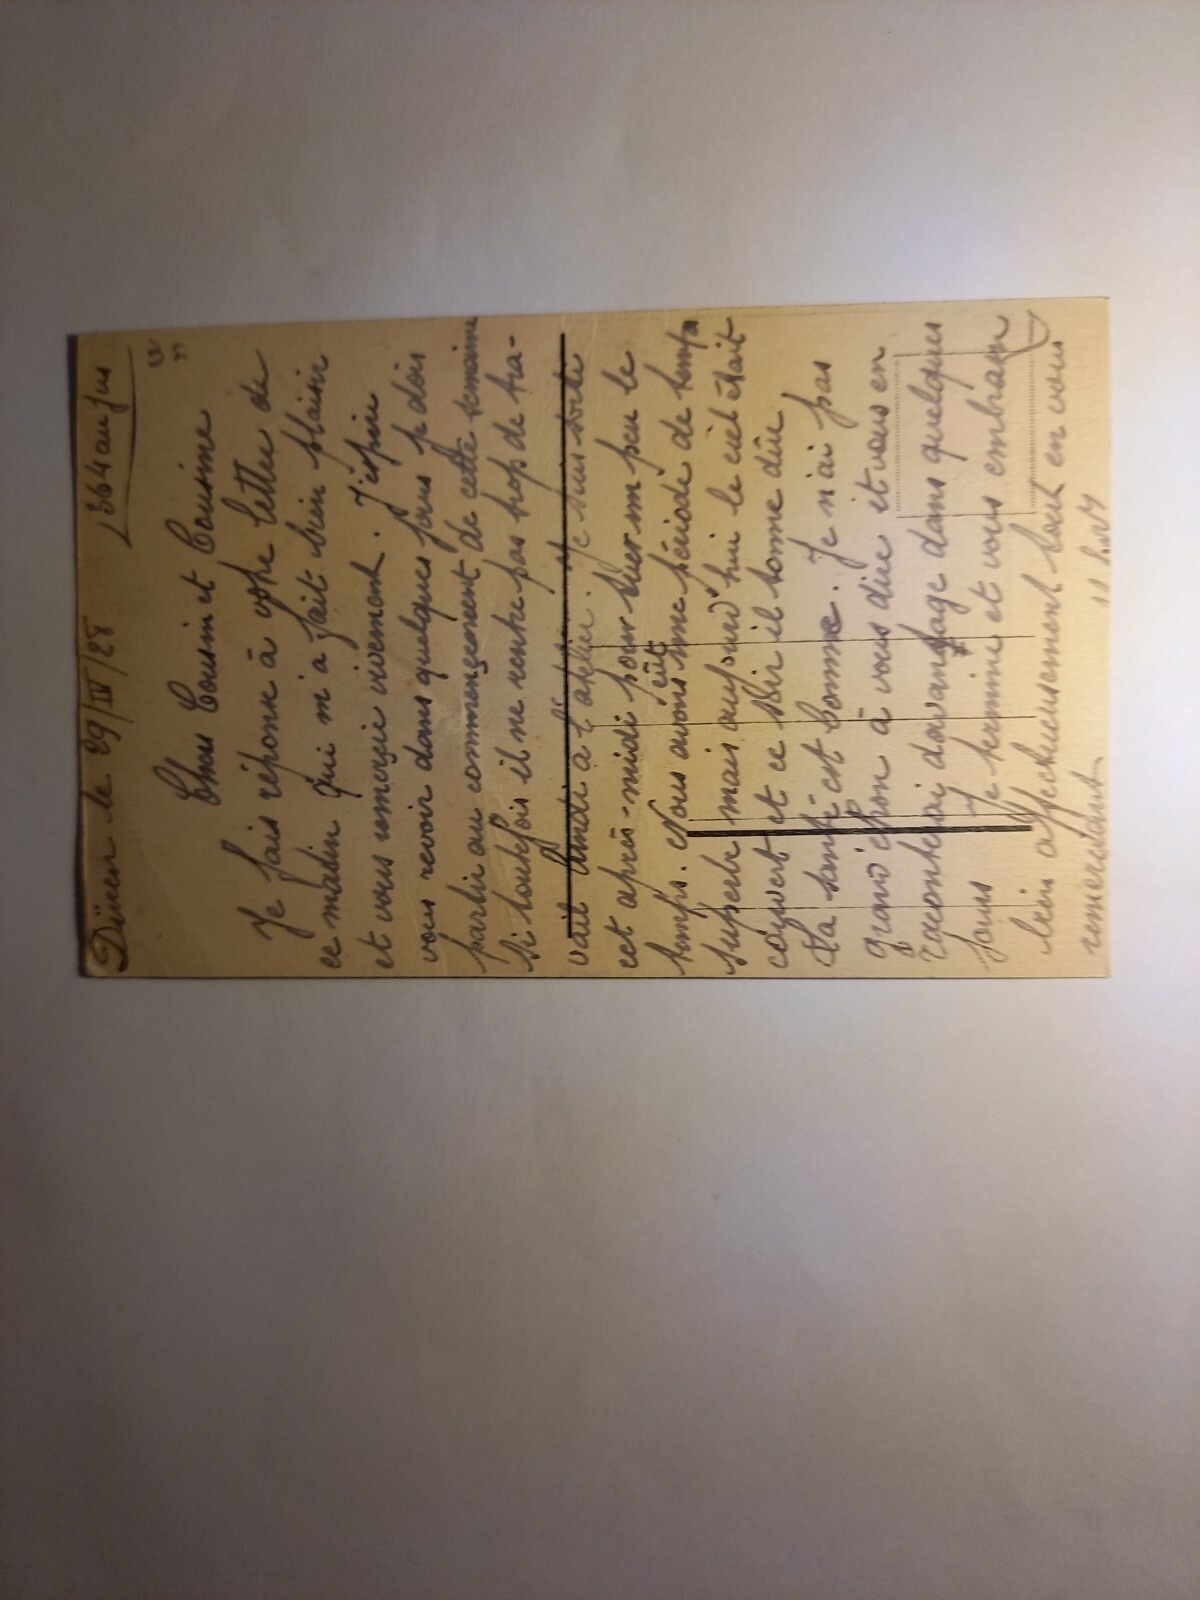 Düren le 29/IV/28
Chers Cousin et Cousine
Je fais réponse à votre lettre de
ce matin qui m'a fait bien plaisir
et vous remercie vivement. J'espère
vous revoir dans quelques jours je dois
partir au commencement de cette semaine
si toutefois il ne rentre pas trop de tra-
vail lundi à l'atelier. Je suis sorti
cet après-midi pour tuer un peu le
temps. Nous avons eût une péiode de temps
superbe mais aujourd'hui le ciel était
couvert et ce soir il tonne dûr
La santé est bonne. Je n'ai pas
grand'chose à vous dire et vous en
raconterai davantage dans quelques
jours Je termine et vous embrasse
bien affectueusement tout en vous
remerciant